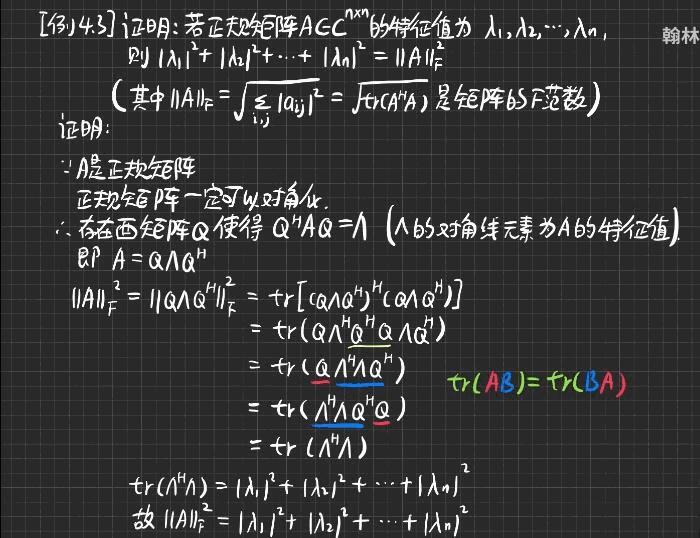 [例4.3] 证明:若正规矩阵A∈C^{n×n}的特征值为 λ₁,λ₂,⋯,λₙ,
翰林
则 |λ₁|²+|λ₂|²+⋯+|λₙ|² = ||A||_F²
(其中 ||A||_F = √(∑_{i,j} |a_{ij}|²) = √(tr(A^H A)) 是矩阵的F范数)
证明:
∵A是正规矩阵
正规矩阵一定可以对角化.
∴存在酉矩阵Q 使得 Q^H A Q = Λ (Λ的对角线元素为A的特征值)
即 A = QΛQ^H
||A||_F² = ||QΛQ^H||_F² = tr[(QΛQ^H)^H(QΛQ^H)]
= tr(QΛ^H Q^H QΛQ^H)
= tr(QΛ^H ΛQ^H)
tr(AB)=tr(BA)
= tr(Λ^H ΛQ^H Q)
= tr(Λ^H Λ)
tr(Λ^H Λ) = |λ₁|²+|λ₂|²+⋯+|λₙ|²
故 ||A||_F² = |λ₁|²+|λ₂|²+⋯+|λₙ|²